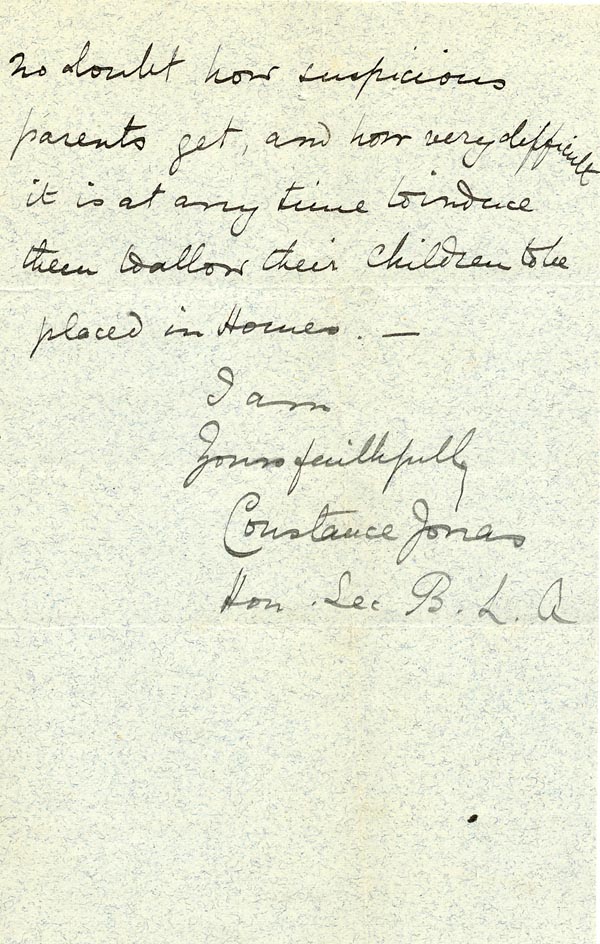 no doubt how suspicious
parents get, and how very difficult
it is at any time to induce
them to allow their children to be
placed in Homes. —
I am
Yours faithfully
Constance Jonas
Hon. Sec B. L. A